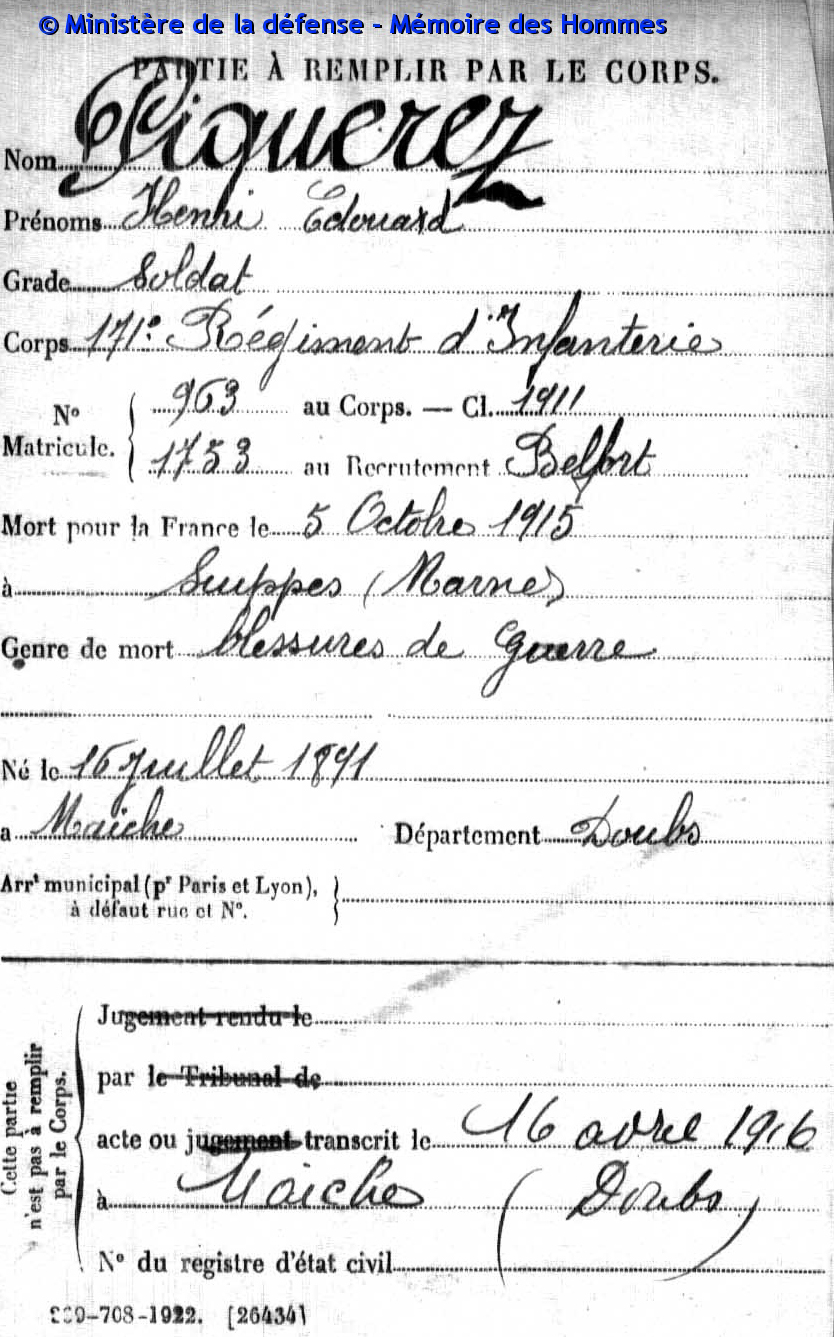 © Ministère de la défense - Mémoire des Hommes
PARTIE À REMPLIR PAR LE CORPS.
Nom Piquerez
Prénoms Henri Edouard
Grade Soldat
Corps 171e Régiment d'Infanterie
N° 963 au Corps. — Cl. 1911
Matricule. 1753 au Recrutement Belfort
Mort pour la France le 5 Octobre 1915
à Suippes (Marne)
Genre de mort blessures de Guerre
Né le 16 Juillet 1891
a Maiche Département Doubs
Arrt municipal (pr Paris et Lyon),
à défaut rue et N°.
Cette partie
n'est pas à remplir
par le Corps.
Jugement rendu le
par le Tribunal de
acte ou jugement transcrit le 16 avril 1916
à Maiche (Doubs)
N° du registre d'état civil
-708-1922. [26434]